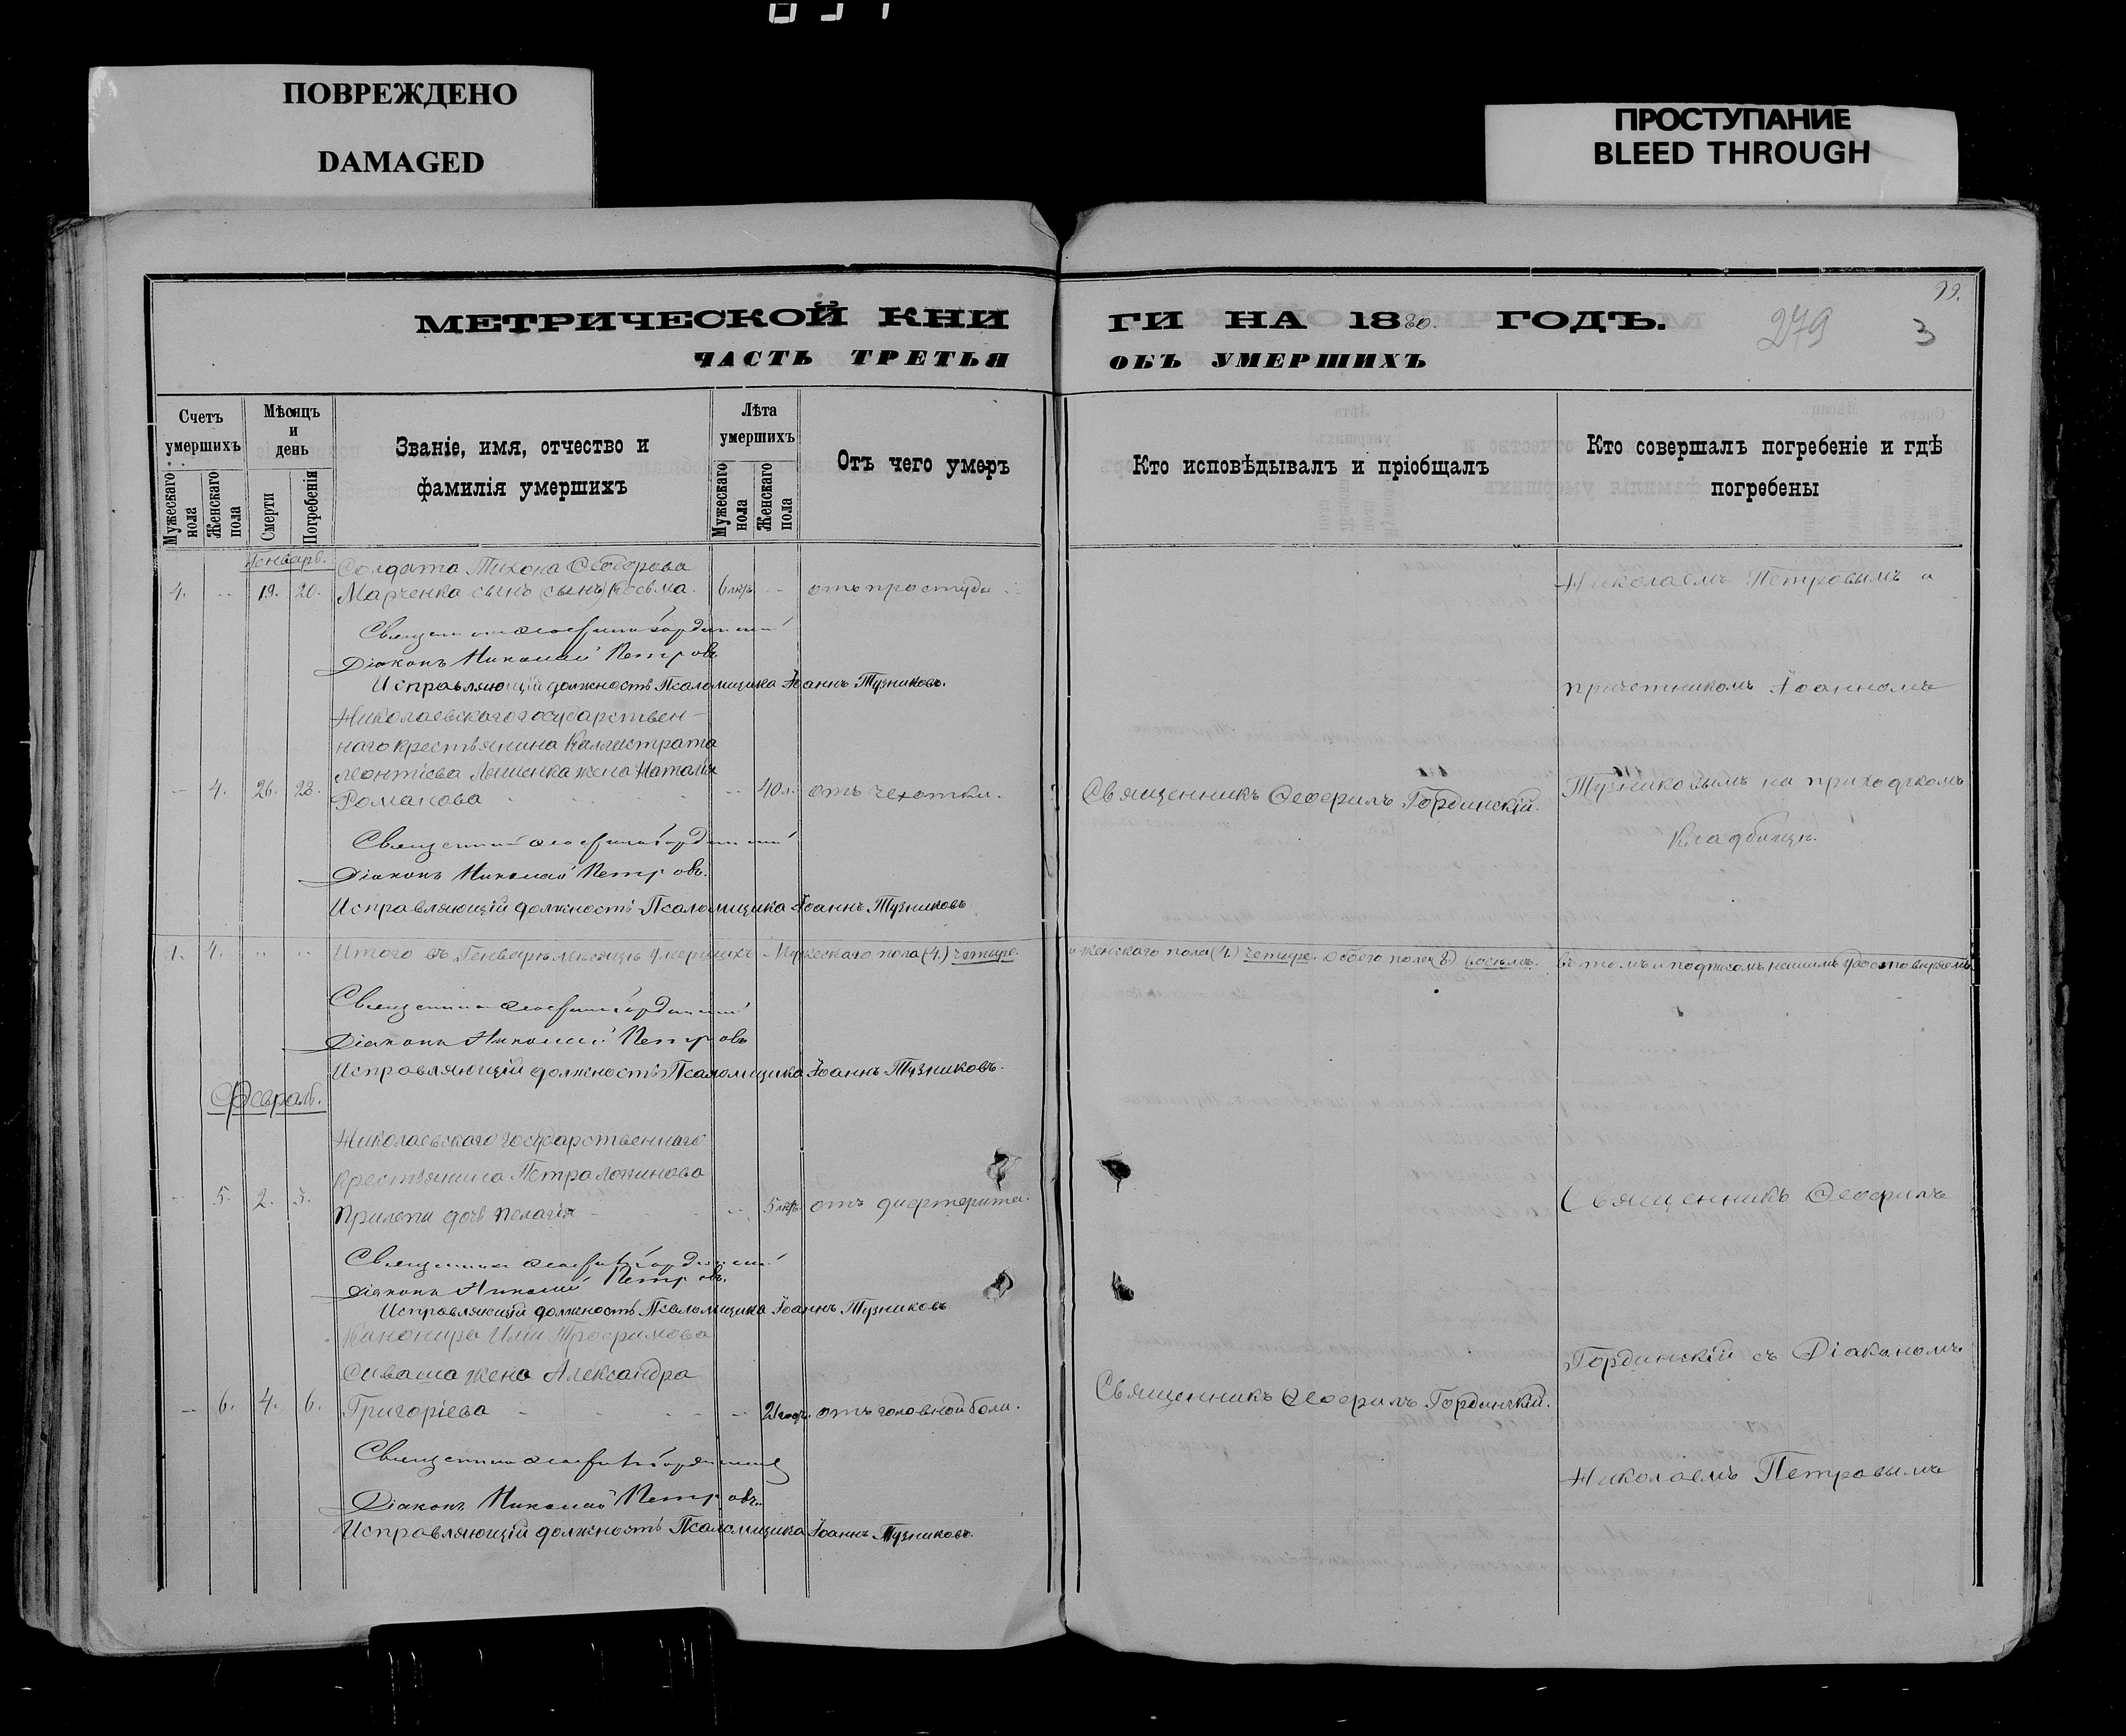 ПОВРЕЖДЕНО
DAMAGED
ПРОСТУПАНИЕ
BLEED THROUGH
99.
279
3
МЕТРИЧЕСКОЙ КНИ
ГИ НА 1880. ГОДЪ.
ЧАСТЬ ТРЕТЬЯ
ОБЪ УМЕРШИХЪ
Счетъ умершихъ
Мужескаго пола
Женскаго пола
Мѣсяцъ и день
Смерти
Погребенія
Званіе, имя, отчество и фамилія умершихъ
Лѣта умершихъ
Мужескаго пола
Женскаго пола
Отъ чего умеръ
Кто исповѣдывалъ и пріобщалъ
Кто совершалъ погребеніе и гдѣ погребены
Генварь.
Солдата Тихона Ѳедорова
4. 19. 20. Марченка сынъ (сынъ) Косьма. 6 лѣтъ отъ простуды
Николаемъ Петровымъ и
Священникъ Ѳеофилъ Гординскій
Діаконъ Николай Петровъ
Исправляющій должность Псаломщика Іоаннъ Тузниковъ.
причетникомъ Іоанномъ
Николаевскаго государствен-
наго крестьянина Каллистрата
Леонтіева Ляшенка жена Наталія
4. 26. 28. Романова 40 л. отъ чехотки.
Священникъ Ѳеофилъ Гординскій.
Тузниковымъ на приходскомъ
кладбищѣ.
Священникъ Ѳеофилъ Гординскій
Діаконъ Николай Петровъ.
Исправляющій должность Псаломщика Іоаннъ Тузниковъ
4. 4. Итого въ Генварѣ мѣсяцѣ умершихъ Мужескаго пола (4.) четыре. и женскаго пола (4.) четыре. обоего пола (8) восемь. въ томъ и подписомъ нашимъ удостовѣряемъ
Священникъ Ѳеофилъ Гординскій
Діаконъ Николай Петровъ
Исправляющій должность Псаломщика Іоаннъ Тузниковъ.
Февраль.
Николаевскаго государственнаго
крестьянина Петра Логинова
5. 2. 3. Прилепы дочь Пелагія 5 лѣтъ отъ дифтерита.
Священникъ Ѳеофилъ
Священникъ Ѳеофилъ Гординскій
Діаконъ Николай Петровъ.
Исправляющій должность Псаломщика Іоаннъ Тузниковъ
Канонира Иліи Трофимова
Сиваша жена Александра
Гординскій съ Діакономъ
6. 4. 6. Григоріева 21 годъ. отъ головной боли.
Священникъ Ѳеофилъ Гординскій.
Священникъ Ѳеофилъ Гординскій
Николаемъ Петровымъ
Діаконъ Николай Петровъ.
Исправляющій должность Псаломщика Іоаннъ Тузниковъ.